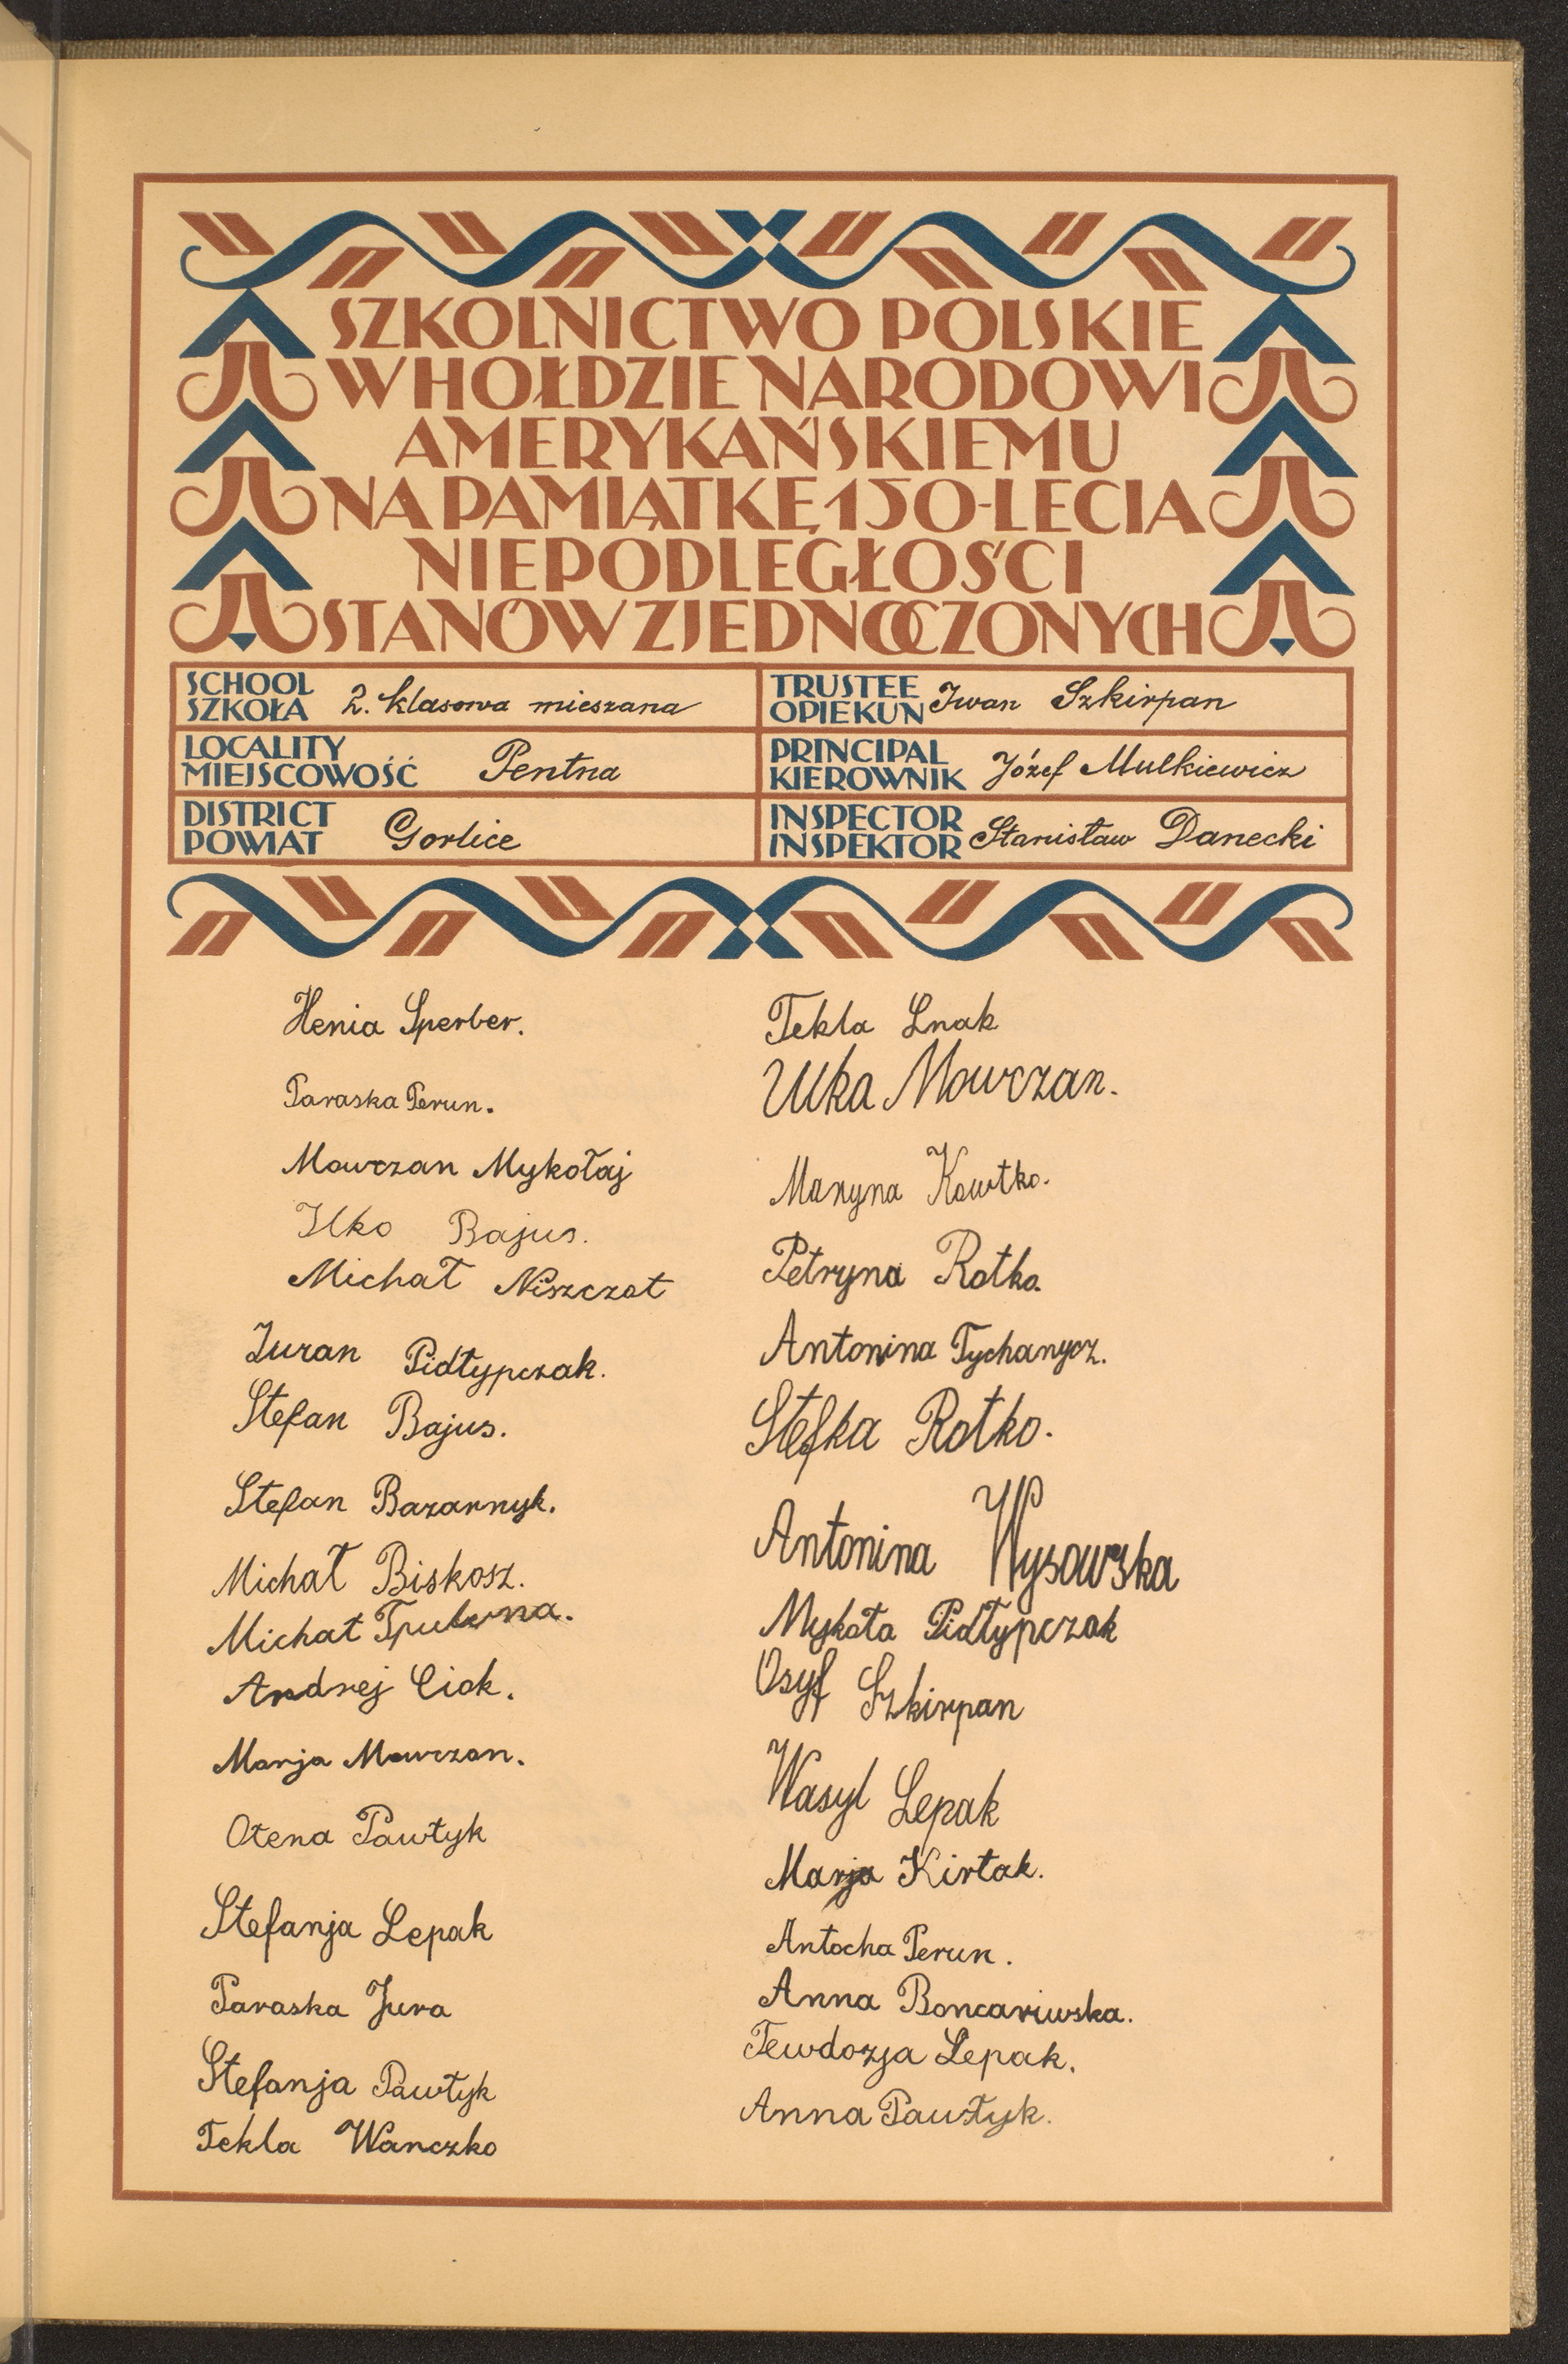 SZKOLNICTWO POLSKIE
W HOŁDZIE NARODOWI
AMERYKAŃSKIEMU
NA PAMIĄTKĘ 150-LECIA
NIEPODLEGŁOŚCI
STANÓW ZJEDNOCZONYCH
SCHOOL
SZKOŁA 2. klasowa mieszana
TRUSTEE
OPIEKUN Iwan Szkirpan
LOCALITY
MIEJSCOWOŚĆ Pentna
PRINCIPAL
KIEROWNIK Józef Mulkiewicz
DISTRICT
POWIAT Gorlice
INSPECTOR
INSPEKTOR Stanisław Danecki
Henia Sperber.
Paraska Perun.
Mowczan Mykołaj
Ilko Bajus.
Michał Niszczot
Pidłypczak.
Stefan Bajus.
Stefan Bazarnyk.
Michał Biskosz.
Michał
Andrej Ciok.
Marja Mowczan.
Ołena Pawłyk
Stefanja Lepak
Paraska Jura
Stefanja Pawłyk
Tekla Wanczko
Tekla Lnak
Ulka Mowczan.
Maryna Kowtko.
Petryna Rotko.
Antonina Tychanycz.
Stefka Rotko.
Antonina Wysowska
Mykoła Pidłypczak
Osyf Szkirpan
Wasyl Lepak
Marja Kirłak.
Antocha Perun.
Anna Boncariwska.
Tewdozja Lepak.
Anna Pawłyk.